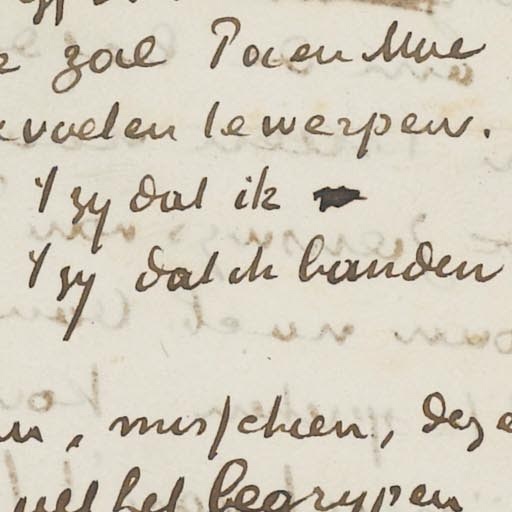 zal Pa en Moe
voeten te werpen.
't zy dat ik
't zy dat ik banden
, misschien, deze
het begrypen